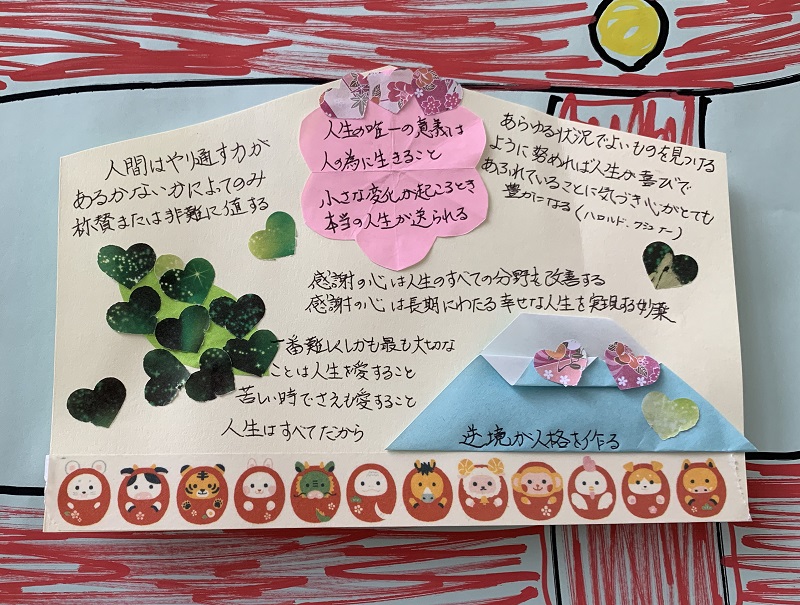 人間はやり通す力が
あるかないかによってのみ
称賛または非難に値する
人生の唯一の意義は
人の為に生きること
小さな変化が起こるとき
本当の人生が送られる
あらゆる状況でよいものを見つける
ように努めれば人生が喜びで
あふれていることに気づき心がとても
豊かになる(ハロルド・クシナー)
感謝の心は人生のすべての分野を改善する
感謝の心は長期にわたる幸せな人生を実現する妙薬
一番難しくしかも最も大切な
ことは人生を愛すること
苦しい時でさえも愛すること
人生はすべてだから
逆境が人格を作る